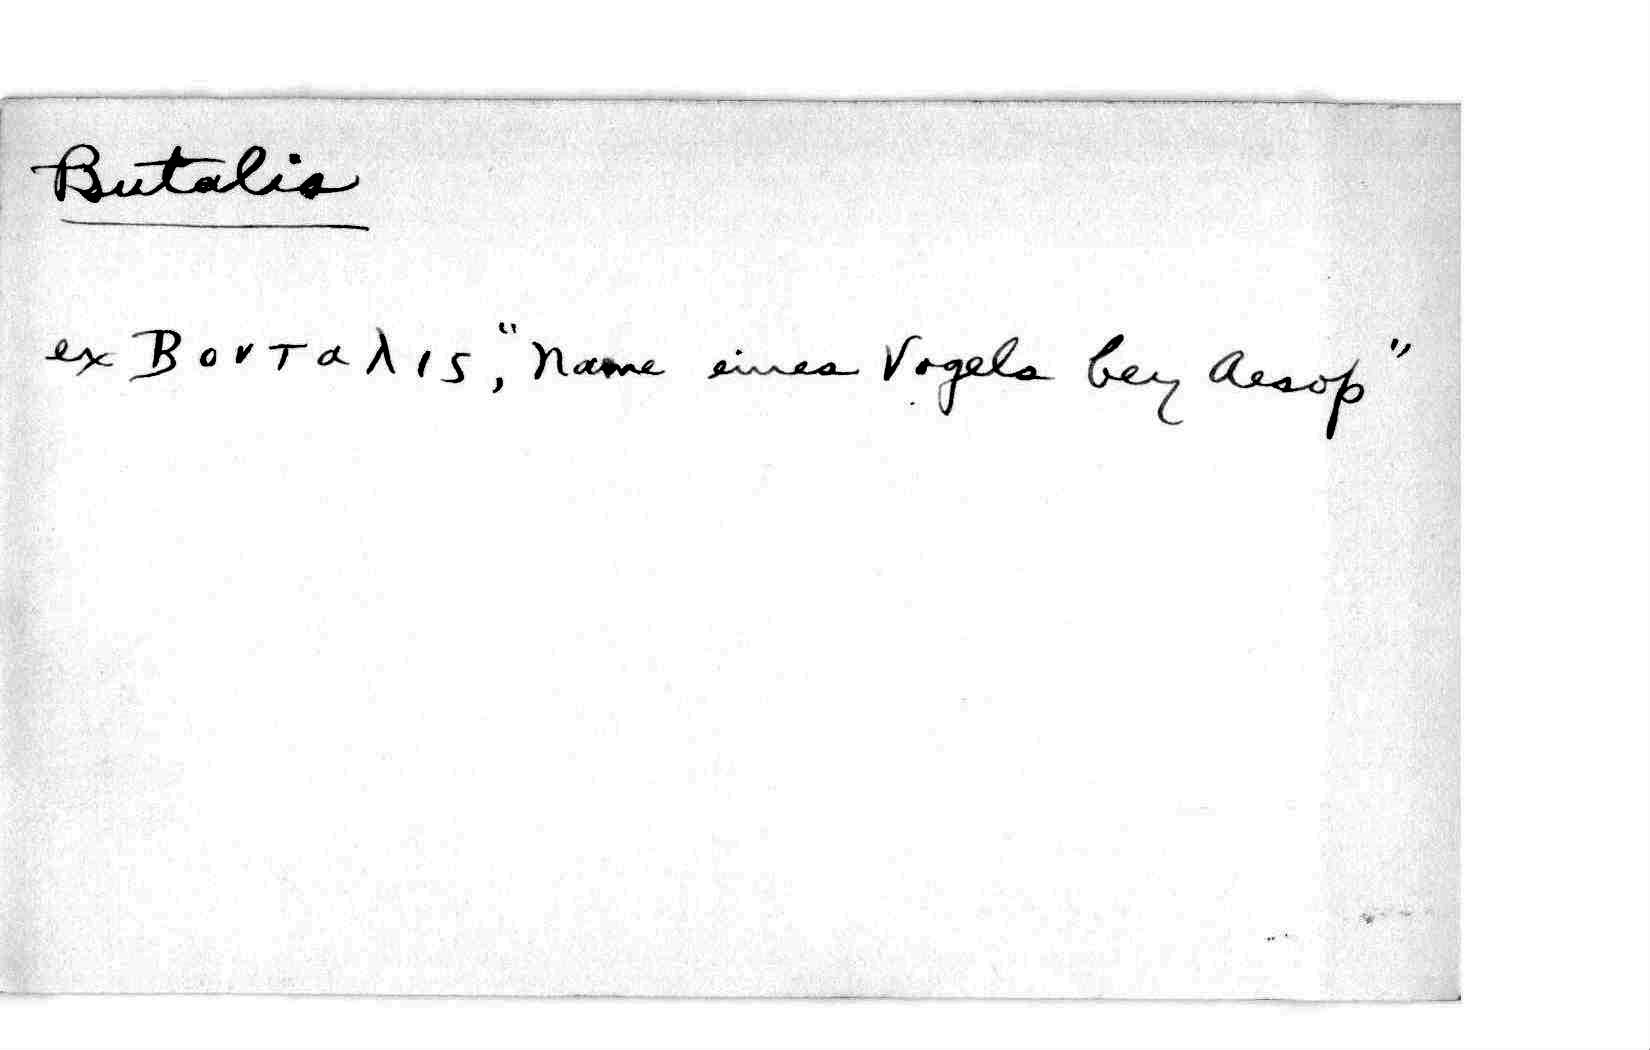 Butalis
ex Βουταλις, "Name eines Vogels bey Aesop"